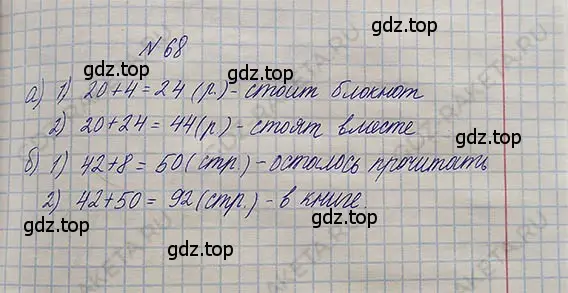 №68
gdz.top gdz.top
а) 1) 20+4=24 (р.) - стоит блокнот
2) 20+24=44(р.) - стоят вместе
gdz.top gdz.top
б) 1) 42+8=50(стр.) - осталось прочитать
2) 42+50=92(стр.) - в книге.
gdz.top gdz.top